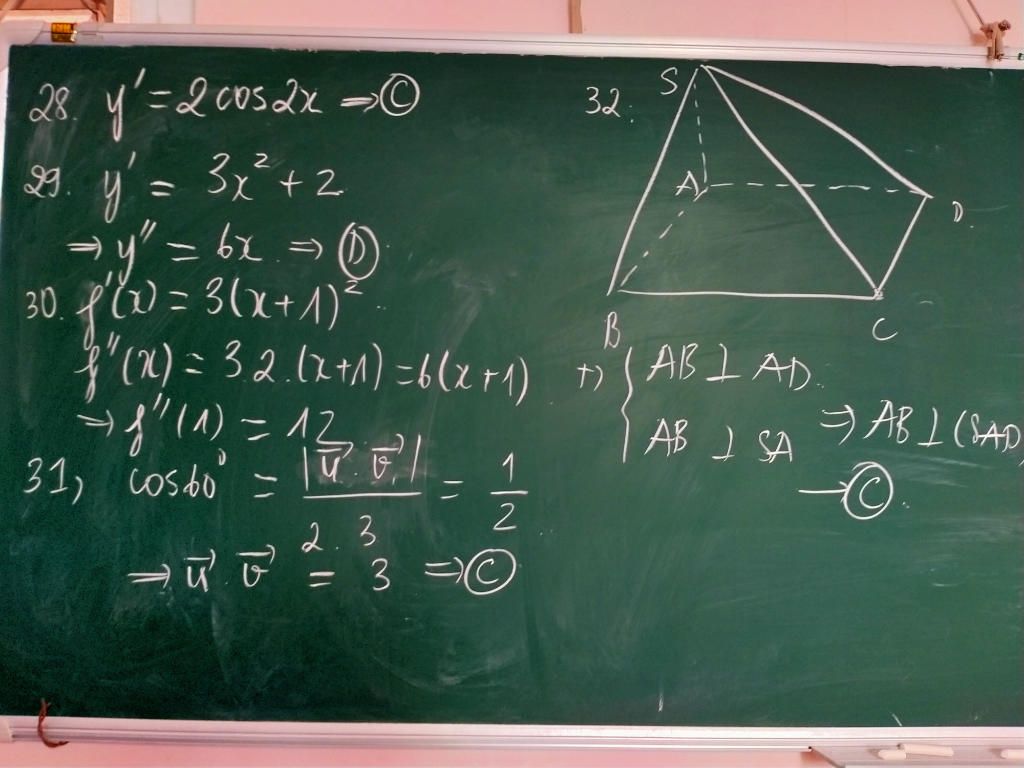 28. y' = 2cos2x ⇒ C
29. y' = 3x² + 2
⇒ y'' = 6x ⇒ D
30. f'(x) = 3(x+1)²
f''(x) = 3.2.(x+1) = 6(x+1)
⇒ f''(1) = 12
31, cos60° = |u⃗.v⃗| / 2.3 = 1/2
⇒ u⃗.v⃗ = 3 ⇒ C
32.
S
A
D
B
C
+) { AB ⊥ AD
AB ⊥ SA ⇒ AB ⊥ (SAD)
→ C